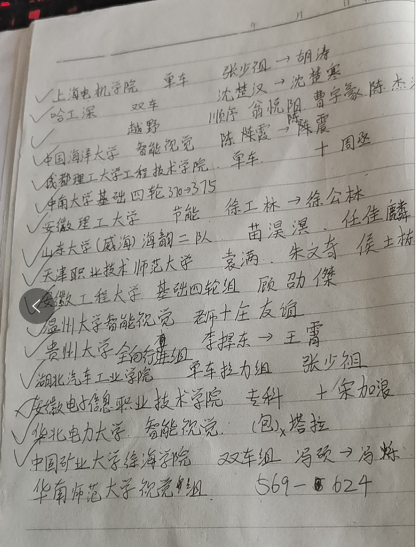 年 月
✓上海电机学院 单车 张少祖→胡涛
✓哈工深 双车 沈楚汉→沈楚寞
✓ 越野 顺序 翁悦阳 曹宇豪 陈杰
✓中国海洋大学 智能视觉 陈陈霞→陈震
✓成都理工大学工程技术学院 单车 十 周丞
✓中南大学基础四轮370→375
✓安徽理工大学 节能 徐工林→徐公林
✓山东大学(威海)海韵二队 苗淏溟 任佳麟
✓天津职业技术师范大学 袁满 朱文奇 侯士栋
安徽工程大学 基础四轮组 顾劭傑
✓温州大学智能视觉 老师十庄友谊
✓贵州大学全向行进组 李捍东→王霄
✓湖北汽车工业学院 单车拉力组 张少祖
✓安徽电子信息职业技术学院 专科 +宋加浪
✓华北电力大学 智能视觉 (包)x塔拉
✓中国矿业大学徐海学院 双车组 冯硕→冯烁
华南师范大学视觉组 569-624